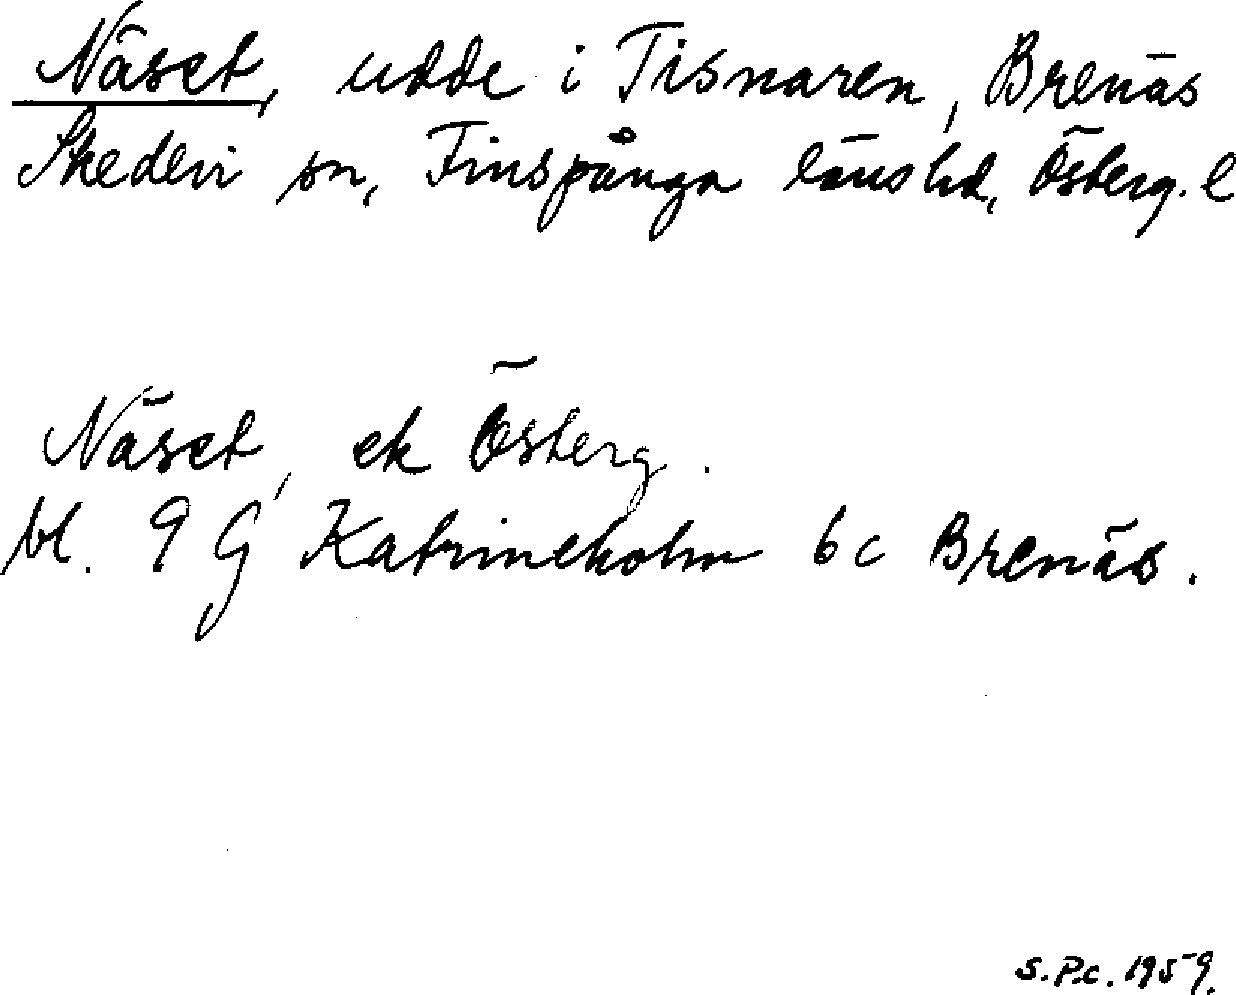 Näset, udde i Tisnaren, Brenäs
Skedevi sn, Finspånga länshd, Österg. l
Näset, ek Österg.
bl. 9 G Katrineholm 6 c Brenäs.
S.P.c. 1959.